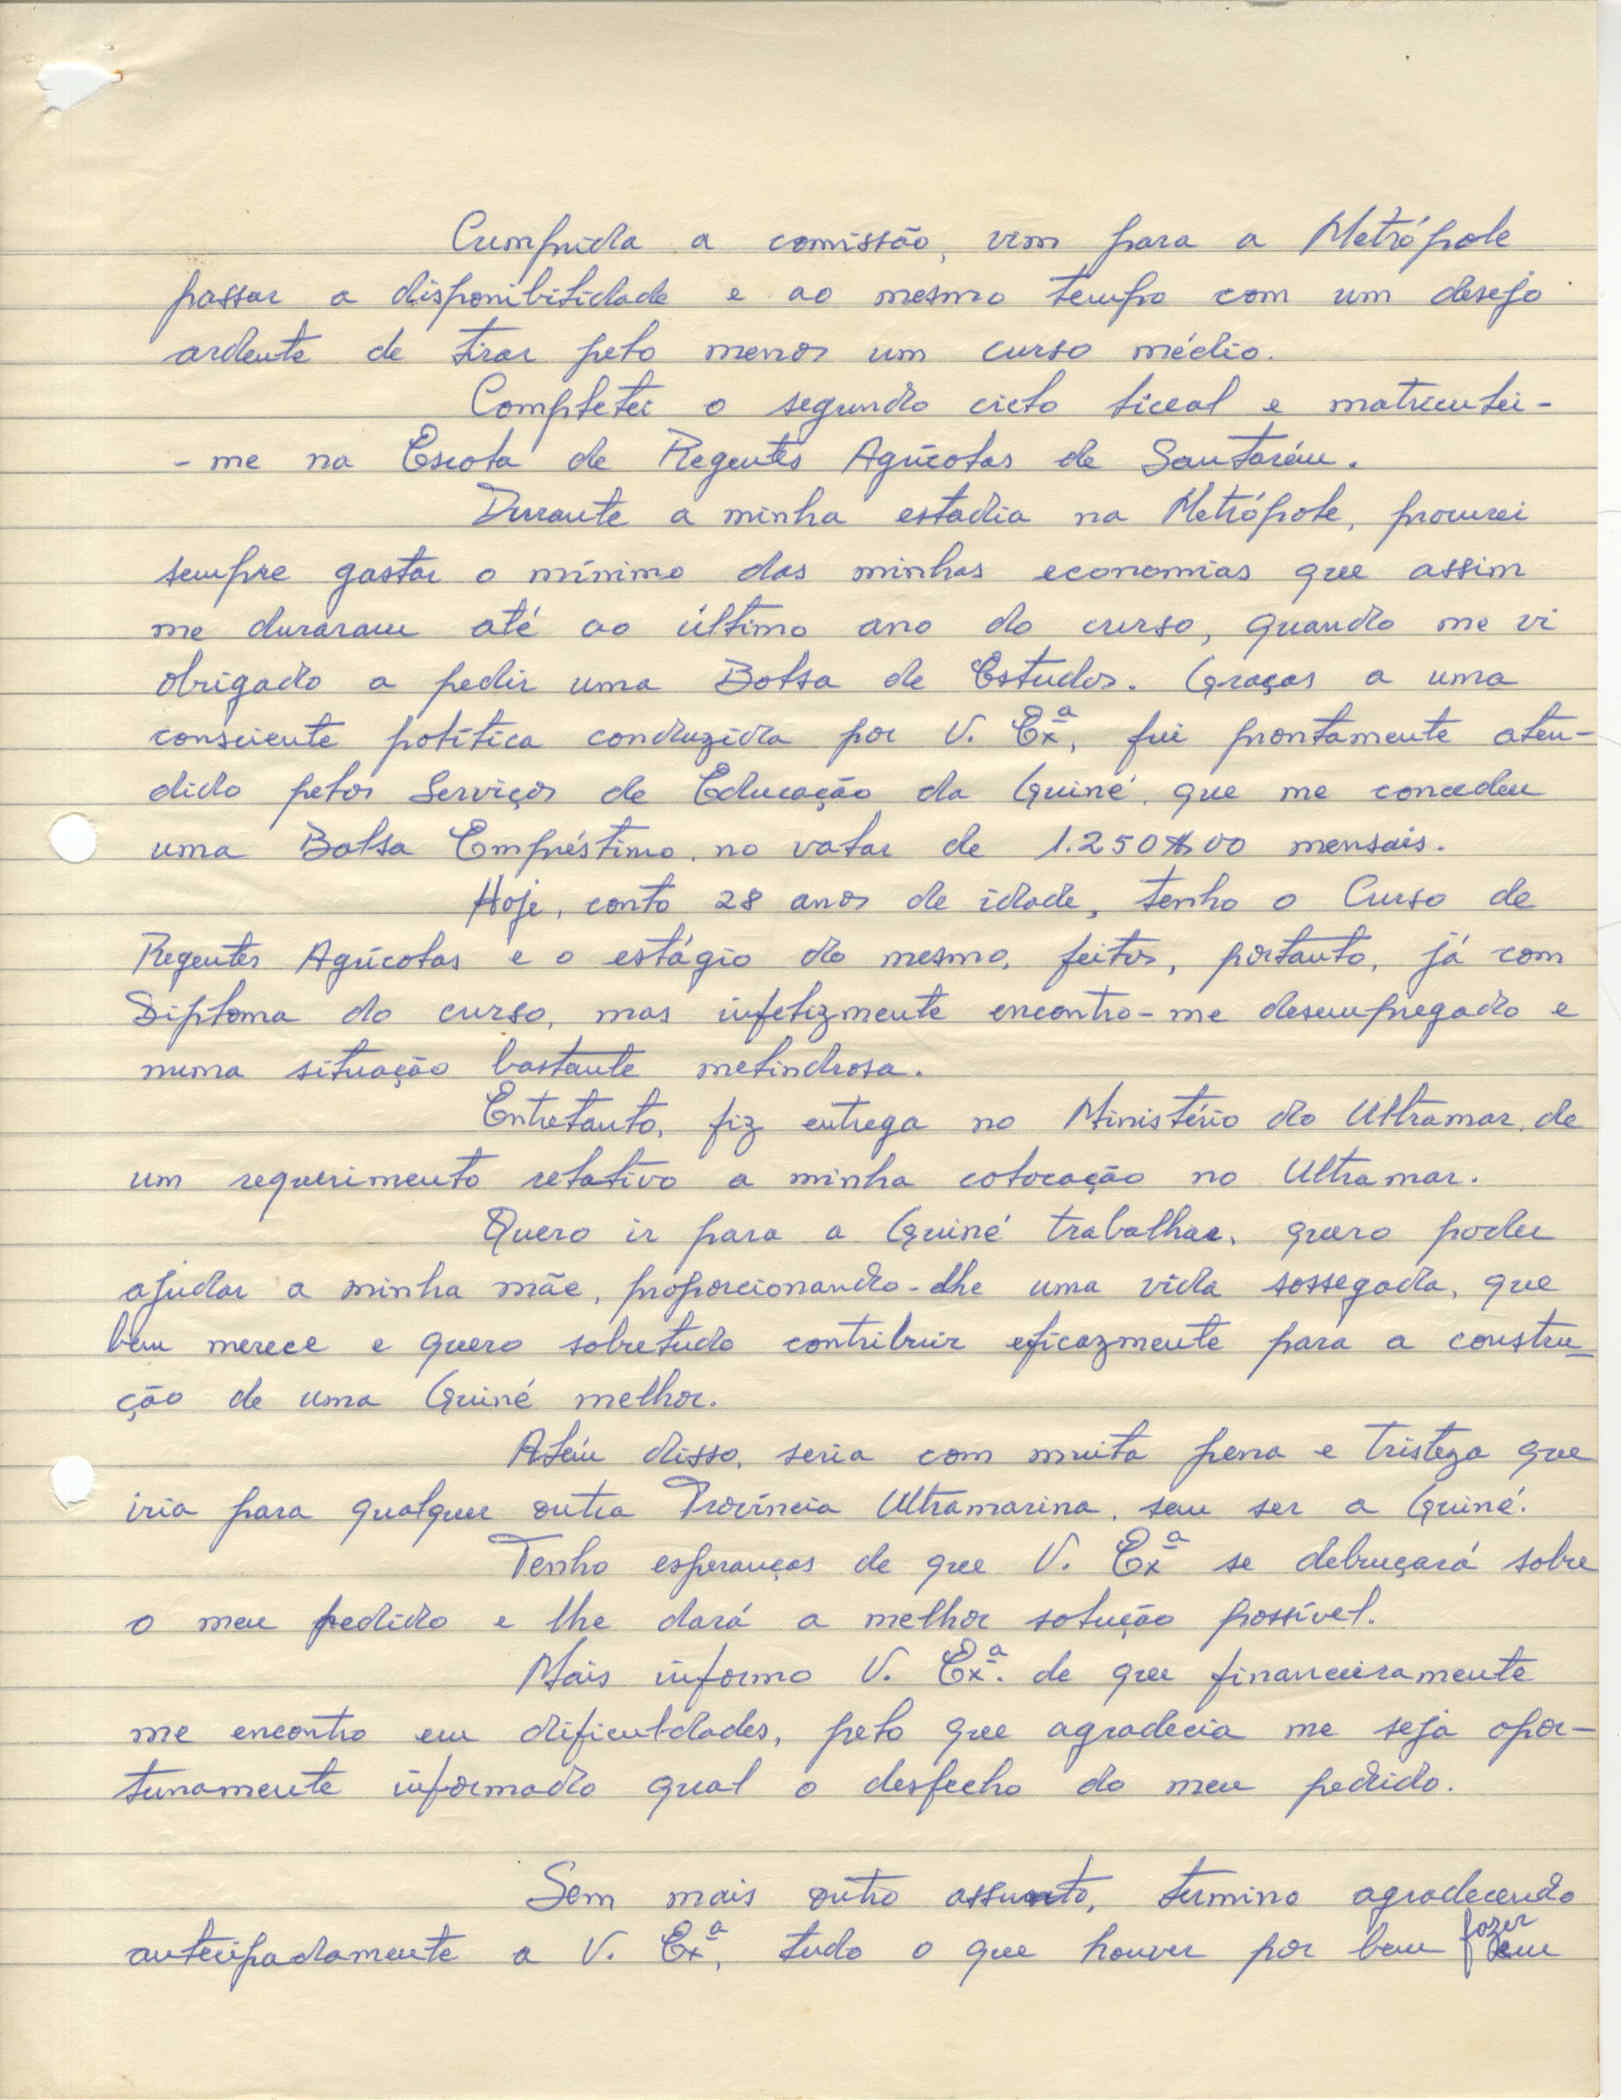 Cumprida a comissão, vim para a Metrópole
passar a disponibilidade e ao mesmo tempo com um desejo
ardente de tirar pelo menos um curso médio.
Completei o segundo ciclo liceal e matriculei-
-me na Escola de Regentes Agrícolas de Santarém.
Durante a minha estadia na Metrópole, procurei
sempre gastar o mínimo das minhas economias que assim
me duraram até ao último ano do curso, quando me vi
obrigado a pedir uma Bolsa de Estudos. Graças a uma
consciente política conduzida por V. Exª, fui prontamente aten-
dido pelos Serviços de Educação da Guiné, que me concedeu
uma Bolsa Empréstimo, no valor de 1.250$00 mensais.
Hoje, conto 28 anos de idade, tenho o Curso de
Regentes Agrícolas e o estágio do mesmo, feitos, portanto, já com
Diploma do curso, mas infelizmente encontro-me desempregado e
numa situação bastante melindrosa.
Entretanto, fiz entrega no Ministério do Ultramar, de
um requerimento relativo a minha colocação no Ultramar.
Quero ir para a Guiné trabalhar, quero poder
ajudar a minha mãe, proporcionando-lhe uma vida sossegada, que
bem merece e quero sobretudo contribuir eficazmente para a constru-
ção de uma Guiné melhor.
Além disso, seria com muita pena e tristeza que
iria para qualquer outra Província Ultramarina, sem ser a Guiné.
Tenho esperanças de que V. Exª se debruçará sobre
o meu pedido e lhe dará a melhor solução possível.
Mais informo V. Exª. de que financeiramente
me encontro em dificuldades, pelo que agradecia me seja opor-
tunamente informado qual o desfecho do meu pedido.
Sem mais outro assunto, termino agradecendo
antecipadamente a V. Exª, tudo o que houver por bem fazer em